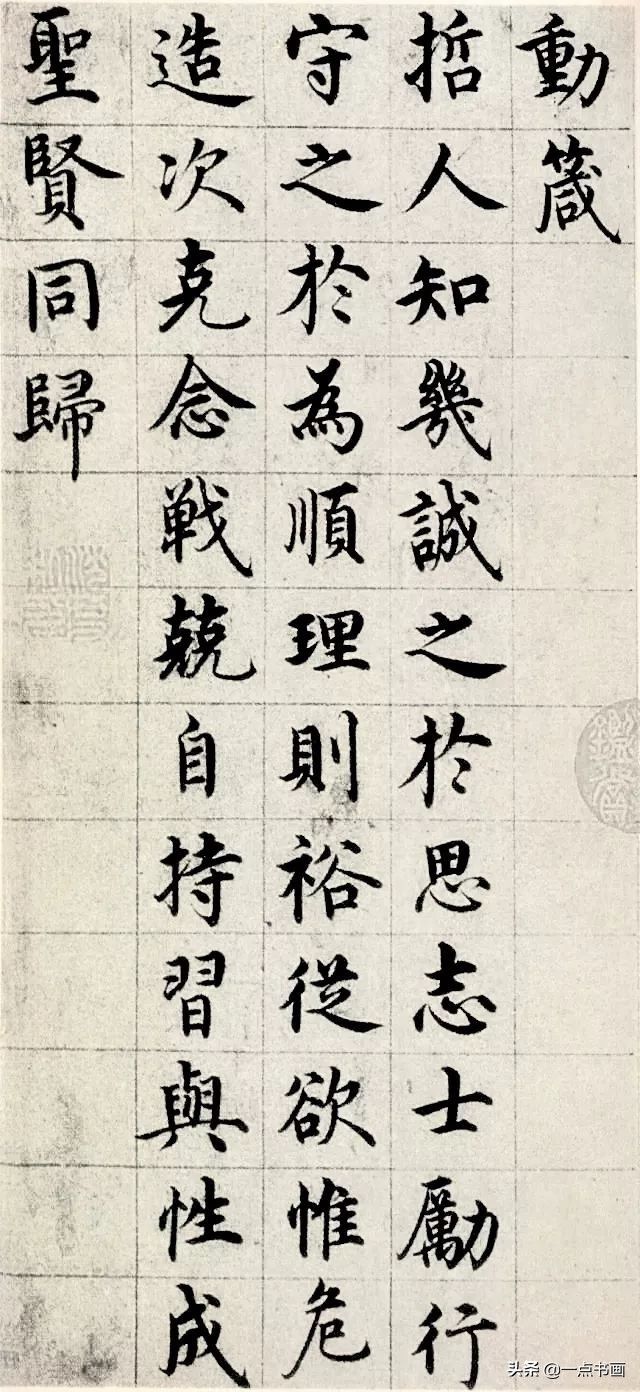 動箴
哲人知幾誠之於思志士勵行
守之於為順理則裕從欲惟危
造次克念戰兢自持習與性成
聖賢同歸
头条 @一点书画